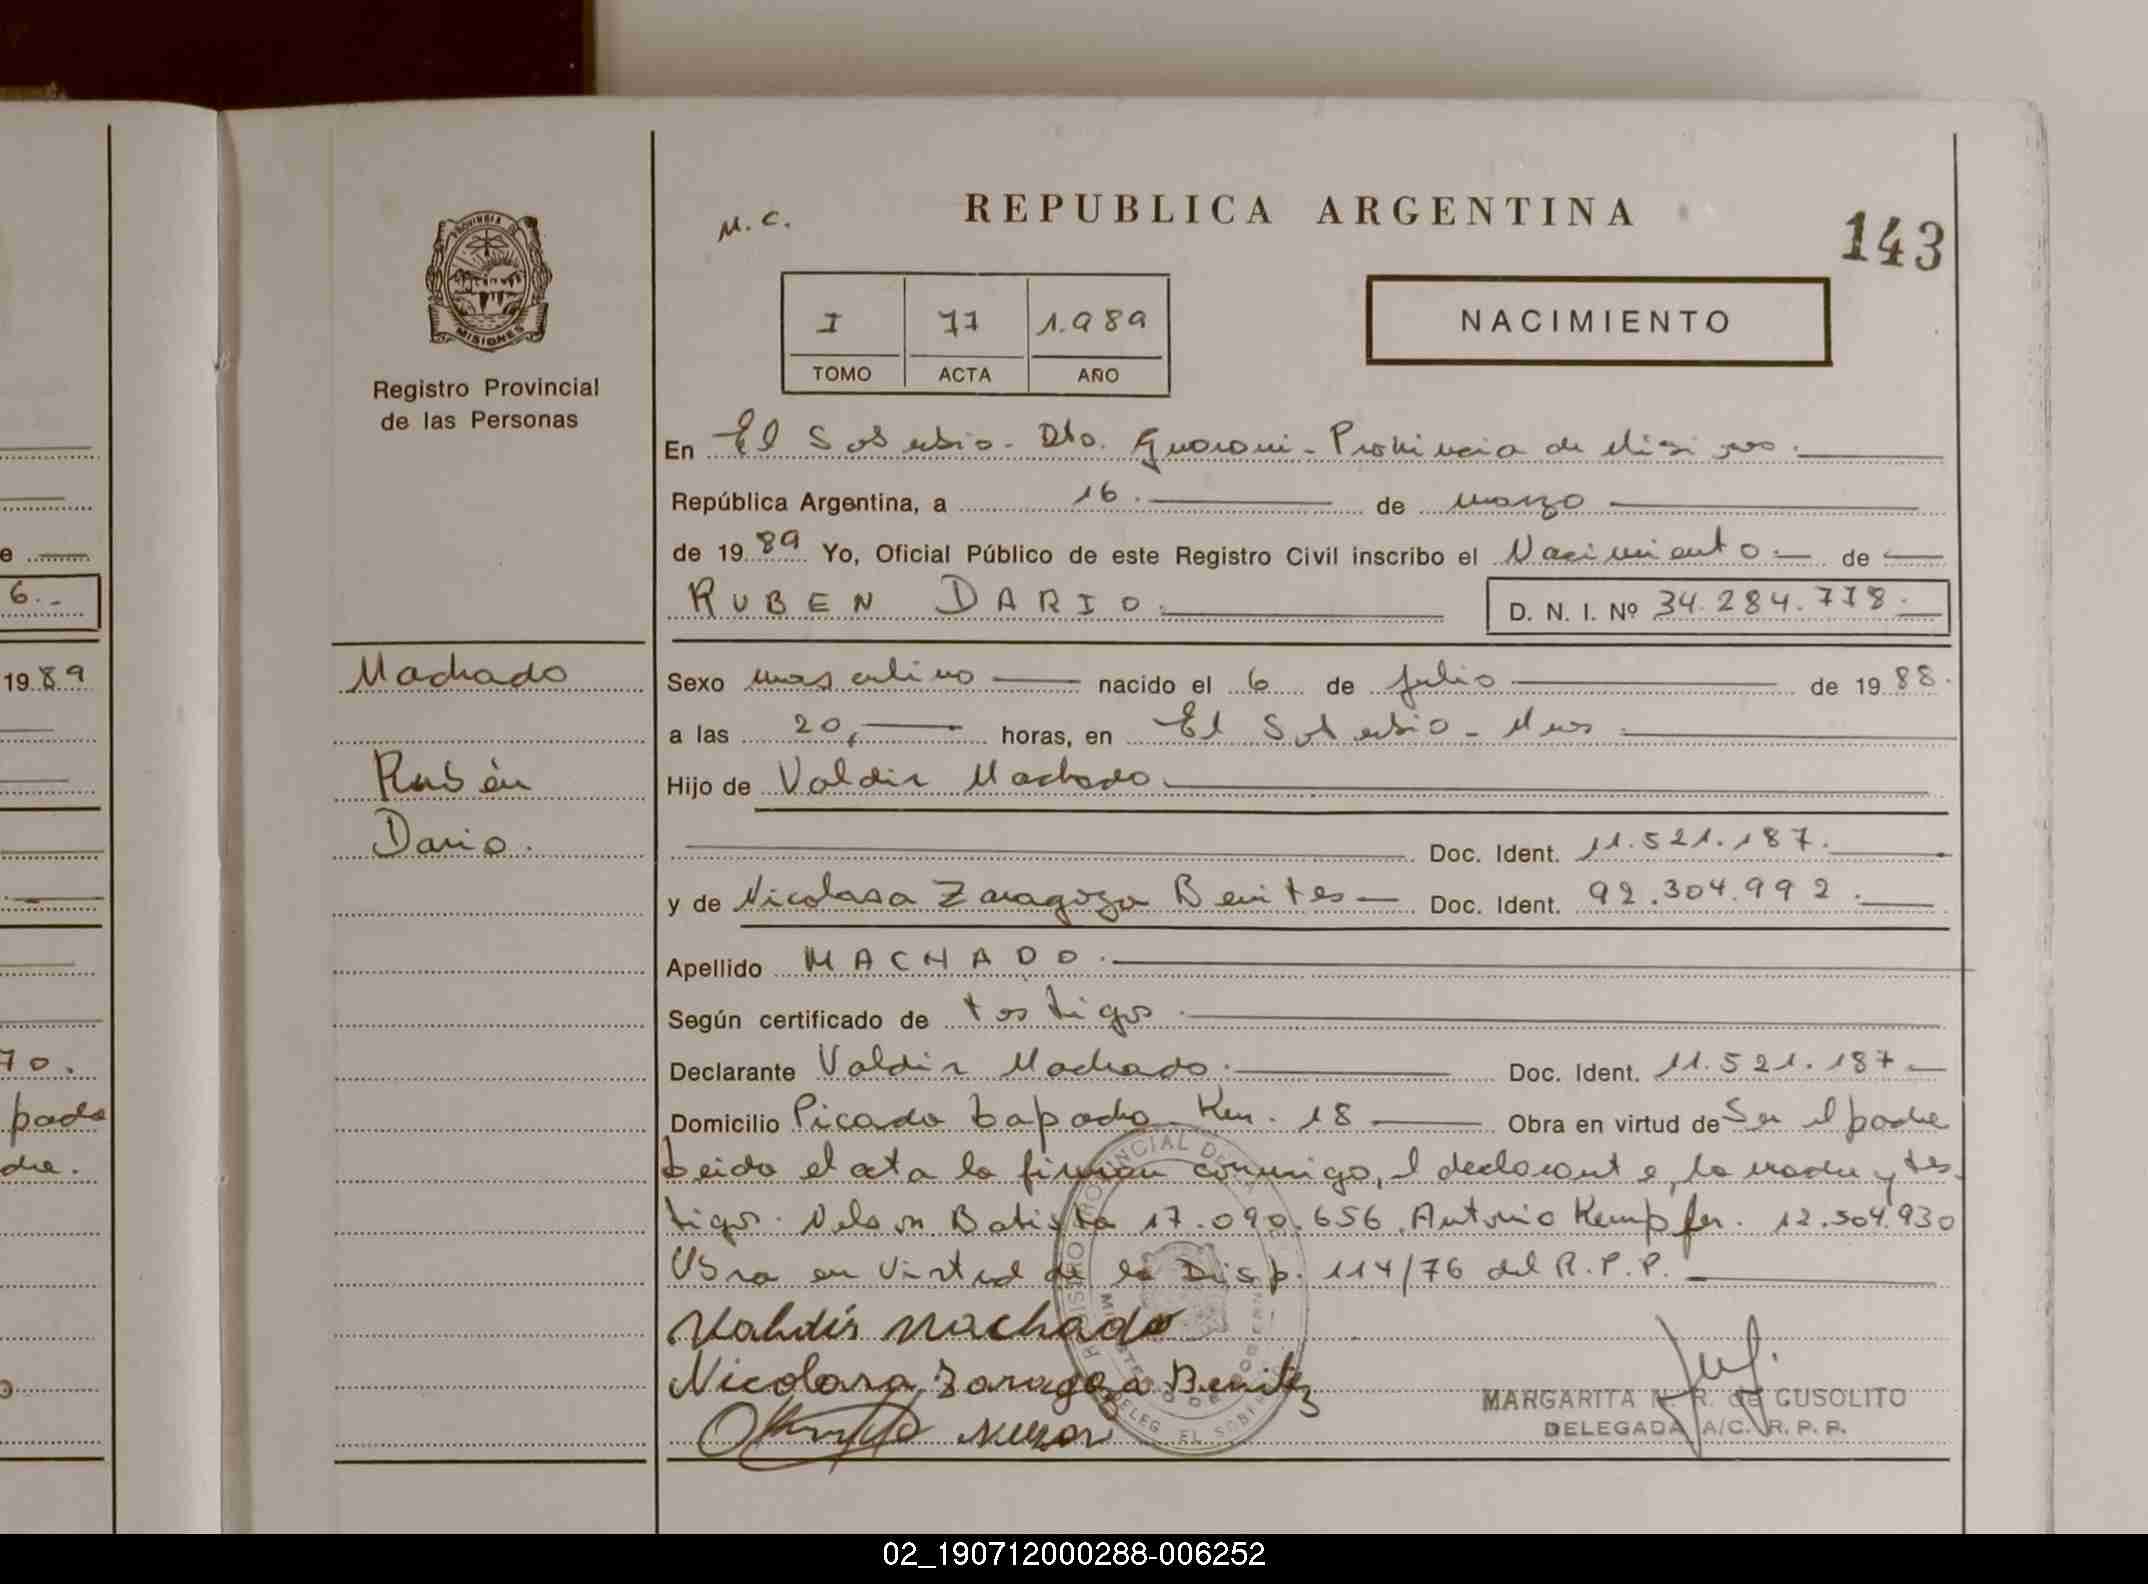 REPUBLICA ARGENTINA
M.C.
143
PROVINCIA DE
MISIONES
Registro Provincial
de las Personas
I 77 1.989
TOMO ACTA AÑO
NACIMIENTO
En El Soberbio - Dto. Guarani - Provincia de Misiones.
República Argentina, a 16. de marzo
de 1989 Yo, Oficial Público de este Registro Civil inscribo el Nacimiento de
RUBEN DARIO. D. N. I. Nº 34.284.778.
Machado
Rubén
Dario.
Sexo masculino nacido el 6 de julio de 1988.
a las 20, horas, en El Soberbio - Mnes
Hijo de Valdir Machado
Doc. Ident. 11.521.187.
y de Nicolasa Zaragoza Benites Doc. Ident. 92.304.992.
Apellido MACHADO.
Según certificado de testigos
Declarante Valdir Machado. Doc. Ident. 11.521.187
Domicilio Picada Zapada Km. 18 Obra en virtud de Ser el padre
Leida el acta la firman conmigo, el declarante, la madre y tes-
tigos. Nelson Batista 17.090.656. Antonio Kempfer. 12.504.930
Obra en virtud de la Disp. 114/76 del R.P.P.
Valdir Machado
Nicolasa Zaragoza Benitez
MARGARITA N. R. de GUSOLITO
DELEGADA A/C. R. P. P.
REGISTRO PROVINCIAL DE LA
MINISTERIO DE GOBIERNO
DELEG. EL SOBERBIO
e
6.-
1989
70.
padre
dre.
02_190712000288-006252